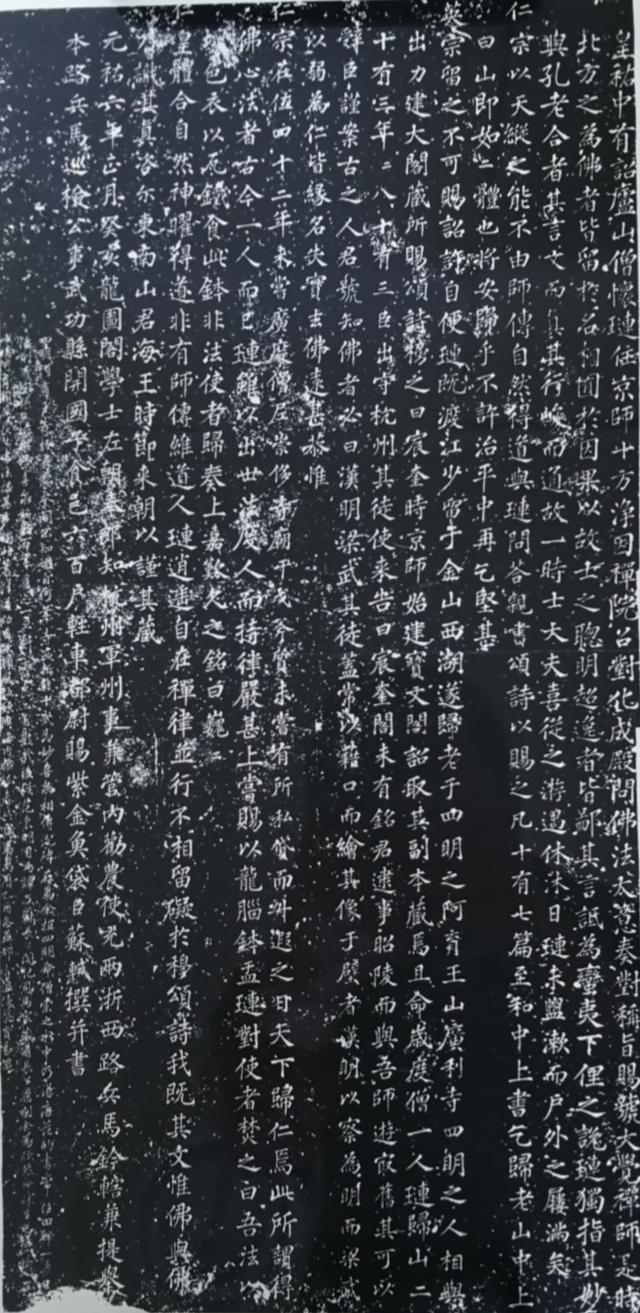 皇祐中有詔廬山僧懷璉住京師十方淨因禪院召對化成殿問佛法大意奏對稱旨賜號大覺禪師是時
北方之為佛者皆留於名相囿於因果以故士之聰明超逸者皆鄙其言詆為蠻夷下俚之說璉獨指其妙
與孔老合者其言文而真其行峻而通故一時士大夫喜從之游遇休沐日璉未盥漱而戶外之屨滿矣
仁宗以天縱之能不由師傳自然得道與璉問答親書頌詩以賜之凡十有七篇至和中上書乞歸老山中上
曰山即如如體也將安歸乎不許治平中再乞堅甚
英宗留之不可賜詔許自便璉既渡江少留于金山西湖遂歸老于四明之阿育王山廣利寺四明之人相與
出力建大閣藏所賜頌詩榜之曰宸奎時京師始建寶文閣詔取其副本藏焉且命歲度僧一人璉歸山二
十有三年年八十有三臣出守杭州其徒使來告曰宸奎閣未有銘君逮事昭陵而與吾師遊最舊其可以
辭臣謹案古之人君號知佛者必曰漢明梁武其徒蓋常以藉口而繪其像于壁者漢明以察為明而梁武
以弱為仁皆緣名失實去佛遠甚恭惟
仁宗在位四十二年未嘗廣度僧尼崇侈寺廟干戈斧質未嘗有所私貸而升遐之日天下歸仁焉此所謂得
佛心法者古今一人而已璉雖以出世法度人而持律嚴甚上嘗賜以龍腦鉢盂璉對使者焚之曰吾法以
壞色衣以瓦鐵食此鉢非法使者歸奏上嘉歎久之銘曰巍巍
仁皇體合自然神曜得道非有師傳維道人璉逍遙自在禪律並行不相留礙於穆頌詩我既其文惟佛與佛
乃識其真咨尔東南山君海王時節來朝以謹其藏
元祐六年正月癸亥龍圖閣學士左朝奉郎知杭州軍州事兼管內勸農使充兩浙西路兵馬鈐轄兼提舉
本路兵馬巡檢公事武功縣開國子食邑六百戶輕車都尉賜紫金魚袋臣蘇軾撰并書